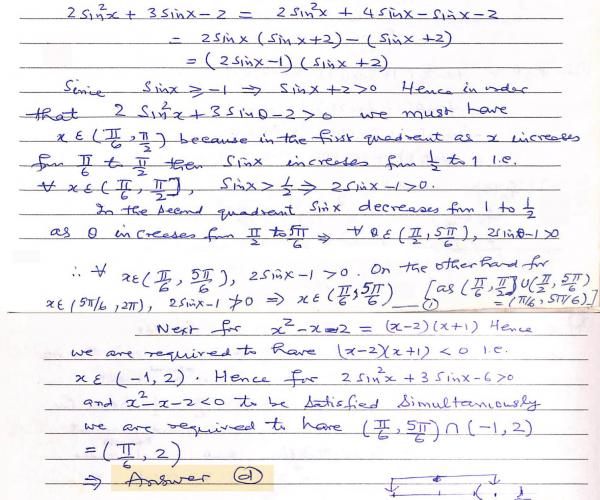 2 sin²x + 3 sinx - 2 = 2 sin²x + 4 sinx - sinx - 2
= 2 sinx (sinx+2) - (sinx+2)
= (2 sinx-1) (sinx+2)
Since sinx ≥ -1 ⇒ sinx+2>0 Hence in order
that 2 sin²x + 3 sinθ - 2 > 0 we must have
x ∈ (π/6, π/2) because in the first quadrant as x increases
from π/6 to π/2 then sinx increases from 1/2 to 1 i.e.
∀ x ∈ (π/6, π/2], sinx > 1/2 ⇒ 2 sinx - 1 > 0.
In the second quadrant sinx decreases from 1 to 1/2
as θ increases from π/2 to 5π/6 ⇒ ∀ θ ∈ (π/2, 5π/6), 2 sinθ-1 >0
∴ ∀ x ∈ (π/6, 5π/6), 2 sinx - 1 > 0. On the other hand for
x ∈ (5π/6, 2π), 2 sinx - 1 ≯ 0 ⇒ x ∈ (π/6, 5π/6) — ① [as (π/6, π/2] ∪ (π/2, 5π/6) = (π/6, 5π/6)]
Next for x² - x - 2 = (x-2)(x+1) Hence
we are required to have (x-2)(x+1) < 0 i.e.
x ∈ (-1, 2). Hence for 2 sin²x + 3 sinx - 6 > 0
and x² - x - 2 < 0 to be satisfied simultaneously
we are required to have (π/6, 5π/6) ∩ (-1, 2)
= (π/6, 2)
⇒ Answer (d)